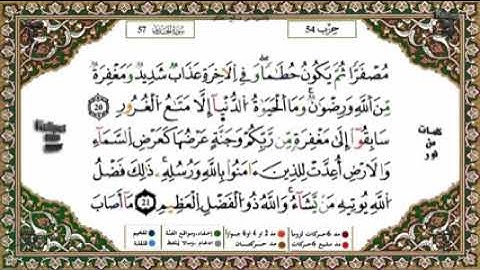 سورة الحديد 57
حزب 54
مُصْفَرًّا ثُمَّ يَكُونُ حُطَٰمًا ۖ وَفِي الْآخِرَةِ عَذَابٌ شَدِيدٌ وَمَغْفِرَةٌ
مِّنَ اللَّهِ وَرِضْوَٰنٌ ۚ وَمَا الْحَيَوٰةُ الدُّنْيَا إِلَّا مَتَٰعُ الْغُرُورِ 20
سَابِقُوٓا إِلَىٰ مَغْفِرَةٍ مِّن رَّبِّكُمْ وَجَنَّةٍ عَرْضُهَا كَعَرْضِ السَّمَآءِ
وَالْأَرْضِ أُعِدَّتْ لِلَّذِينَ ءَامَنُوا بِاللَّهِ وَرُسُلِهِ ۚ ذَٰلِكَ فَضْلُ
اللَّهِ يُؤْتِيهِ مَن يَشَآءُ ۚ وَاللَّهُ ذُو الْفَضْلِ الْعَظِيمِ 21 مَآ أَصَابَ
كلمات
من
نور
مد 6 حركات لزوما
مد 2 او 4 او 6 جوازا
إخفاء، ومواقع الغنة
تفخيم
مد حركتان
قلقلة